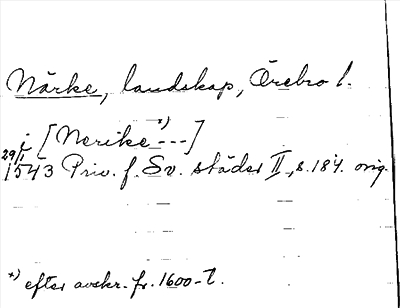 Närke, landskap, Örebro l.
i [Nerike *) ---]
29/1
1543 Priv. f. Sv. städer II, s. 184. orig.
*) efter avskr. fr. 1600-t.